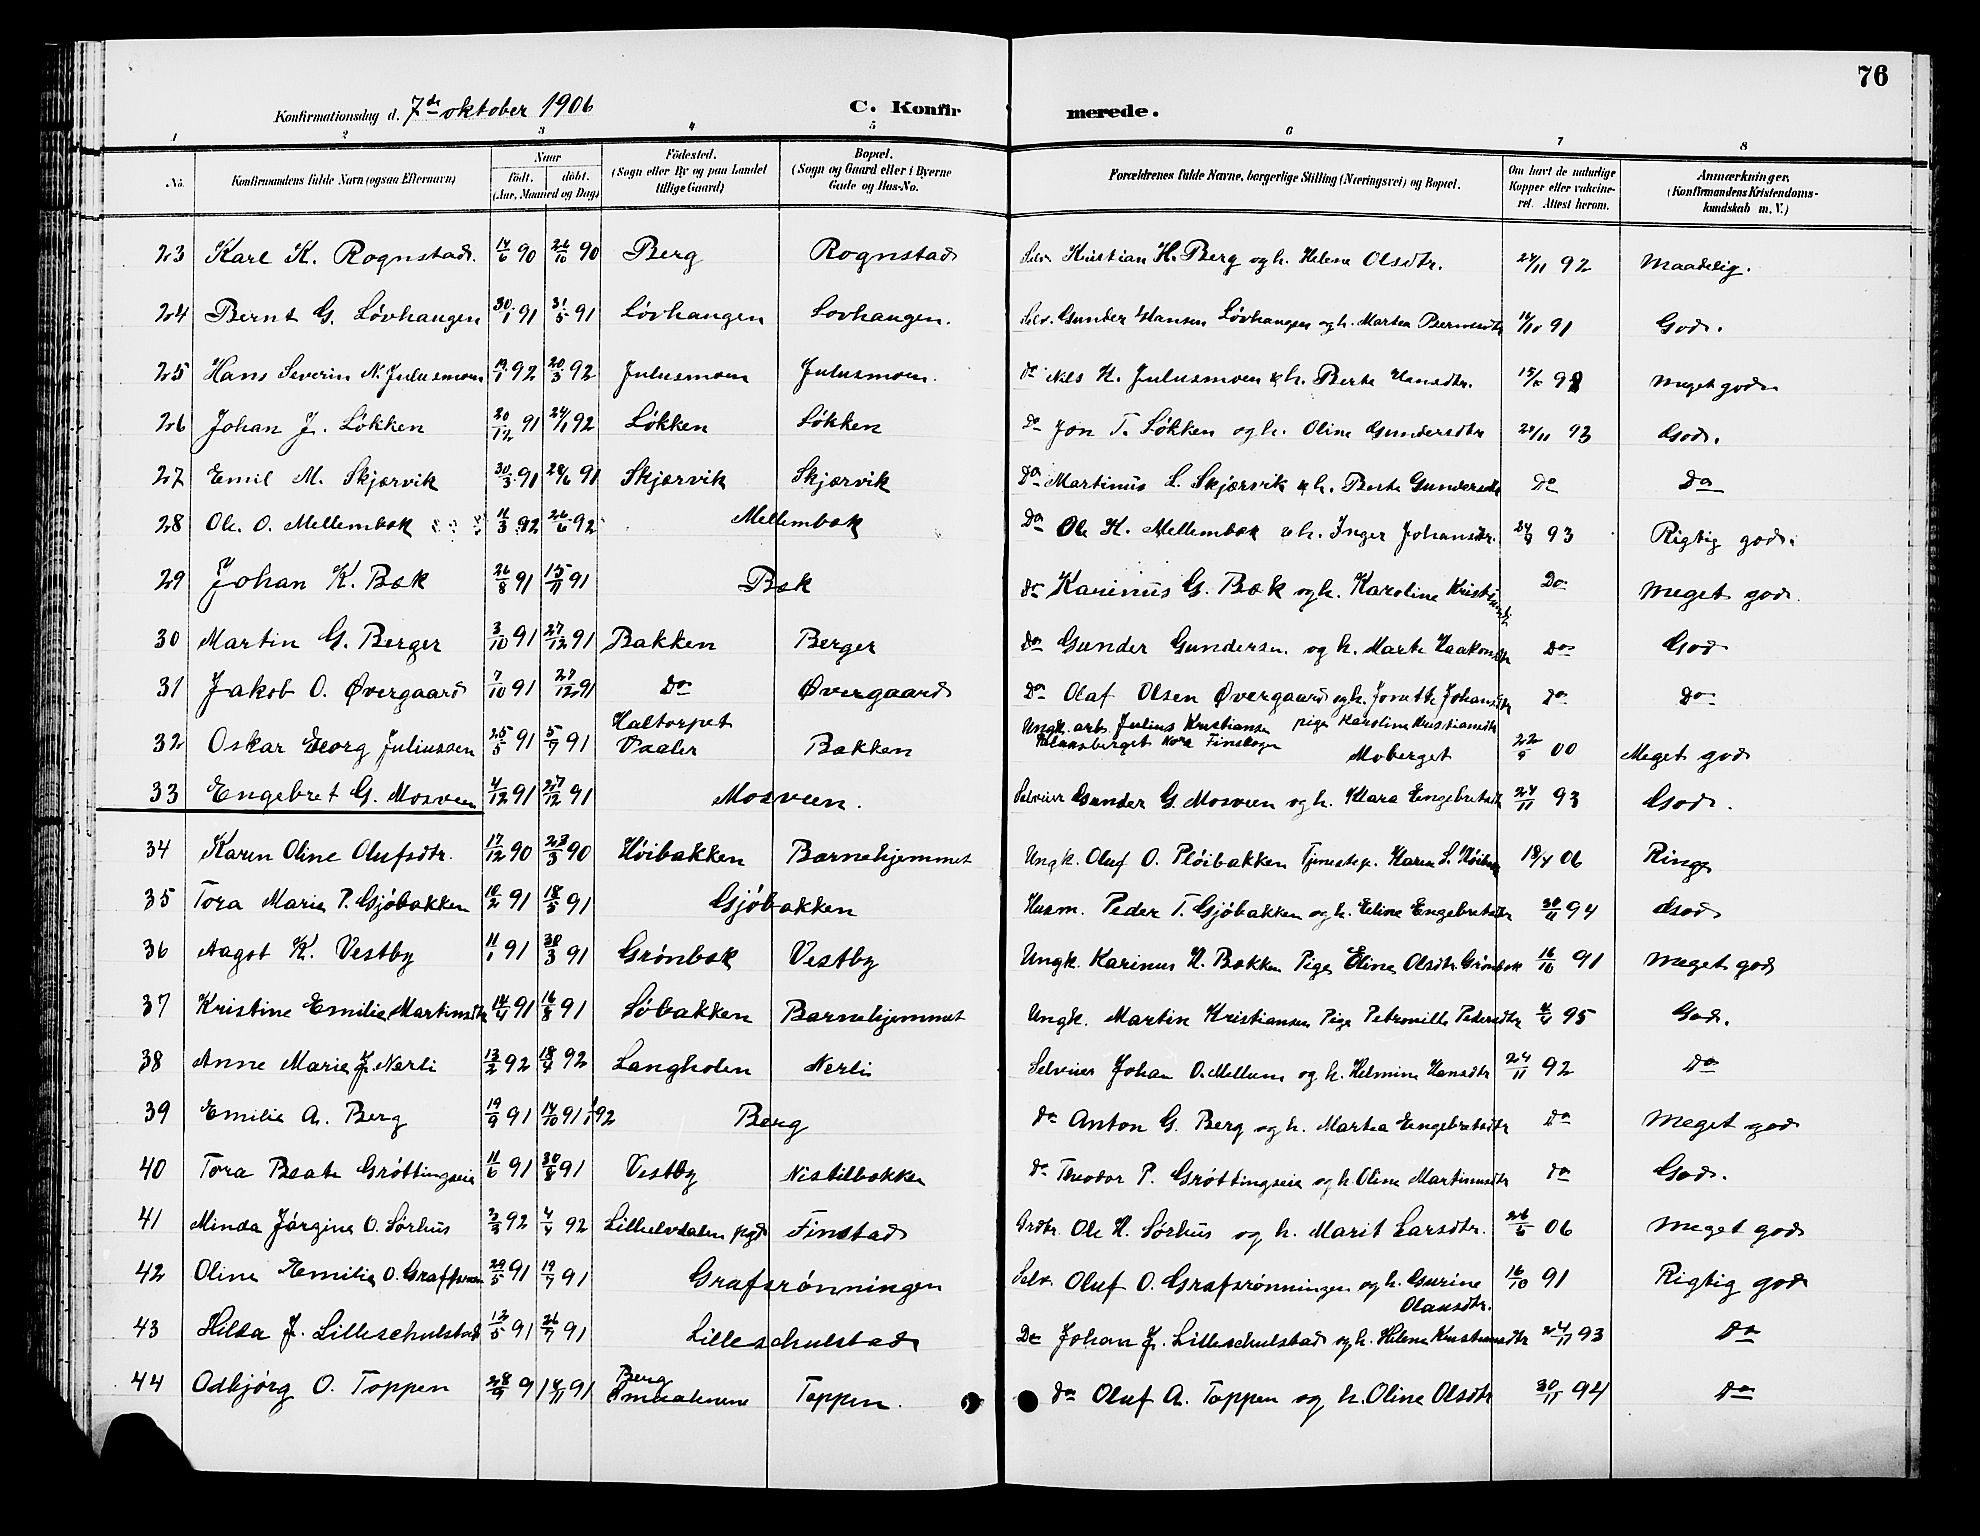 76
Konfirmationsdag d. 7de oktober 1906 C. Konfirmerede.
1 2 3 4 5 6 7 8
No. Konfirmandens fulde Navn (ogsaa Efternavn) Naar födt. döbt. (Aar, Maaned og Dag) Födested. (Sogn eller By og paa Landet tillige Gaard) Bopæl. (Sogn og Gaard eller i Byerne Gade og Hus-No. Forældrenes fulde Navne, borgerlige Stilling (Næringsvei) og Bopæl. Om havt de naturlige Kopper eller vakcineret. Attest herom. Anmærkninger. (Konfirmandens Kristendomskundskab m. V.)
23 Karl K. Rognstad. 14/6 90 26/10 90 Berg Rognstad Selv. Kristian H. Berg og h. Helene Olsdtr. 24/11 92 Maadelig.
24 Bernt G. Lövhaugen 30/1 91 31/5 91 Lövhaugen Lovhaugen. Selv. Gunder Hansen Lövhaugen og h. Martea Berntsdtr 14/10 91 God.
25 Hans Severin N. Julusmoen 19/1 92 20/3 92 Julusmoen Julusmoen. do Nils H. Julusmoen & h. Berte Hansdtr. Meget god
26 Johan J. Løkken 20/12 91 24/1 92 Løkken Løkken do Jon T. Løkken og h. Oline Gundersdtr 24/11 93 God.
27 Emil M. Skjærvik 30/3 91 28/6 91 Skjærvik Skjærvik Do Martinus L. Skjærvik & h. Berte Gundersdtr Do Do
28 Ole O. Mellembæk 11/3 92 26/6 92 Mellembæk Do Ole H. Mellembæk & h. Inger Johansdtr. 93 Rigtig god.
29 Johan K. Bæk 26/8 91 15/11 91 Bæk do Karinus G. Bæk og h. Karoline Do Meget god.
30 Martin G. Berger 3/10 91 27/12 91 Bakken Berger Do Gunder Gundersen og h. Marte Haakonsdtr Do God
31 Jakob O. Øvergaard 7/10 91 27/12 91 Do Øvergaard Do Olaf Olsen Øvergaard og h. Johansdtr Do Do
32 Oskar Georg Juliussen 25/5 91 5/7 91 Haltorpet Vaaler Bakken Ungk. arb. Julius Kristiansen pige Karoline Kristiansdtr Finskogen Moberget 22/9 00 Meget god
33 Engebret G. Mosveen 4/12 91 27/12 91 Mosveen. Selveier Gunder G. Mosveen og h. Klara Engebretsdtr 24/11 93 God.
34 Karen Oline Olufsdtr. 17/12 90 23/3 90 Höibakken Barnehjemmet Ungk. Oluf O. Plöibakken Tjenestep. Karen 18/4 06 Ringe
35 Tora Marie P. Gjöbakken 10/2 91 18/5 91 Gjöbakken Husm. Peder T. Gjöbakken og h. Eline Engebretsdtr 30/11 94 God
36 Aagot K. Vestby 11/1 91 30/3 91 Grönbæk Vestby Ungk. Karinus H. Bakken Pige Eline Olsdtr. Grönbæk 16/10 91 Meget god
37 Kristine Emilie Martinsdtr 14/4 91 16/8 91 Löbakken Barnehjemmet Ungk. Martin Kristiansen Pige Petronille Pedersdtr 95 God.
38 Anne Marie J. Nerli 13/2 92 18/4 92 Langholen Nerli Selveier Johan O. Mellum og h. Helmine Hansdtr 24/11 92 Do
39 Emilie A. Berg 19/9 91 14/10 91 Berg do Anton G. Berg og h. Martea Engebretsdtr Do Meget god
40 Tora Beate Gröttingseie 11/6 91 30/8 91 Vestby Nistilbakken do Theodor P. Gröttingseie og h. Oline Martinusdtr do God.
41 Minda Jörgine O. Sörhus 3/3 92 4/4 92 Lilleelvdalen pgd Finstad Ole H. Sörhus og h. Marit Larsdtr. 06 Meget god
42 Oline Emilie O. Grafsrön 29/5 91 19/7 91 Grafsrönningen Selv. Oluf O. Grafsrönningen og h. Gurine Olausdtr. 16/10 91 Rigtig god
43 Hilda J. Lilleschulstad 12/5 91 26/7 91 Lilleschulstad Do Johan J. Lilleschulstad og h. Helene Kristiansdtr 24/11 93 Do
44 Odbjørg O. Toppen 28/9 91 91 Berg Toppen. do Oluf A. Toppen og h. Oline Olsdtr 30/11 94 Do